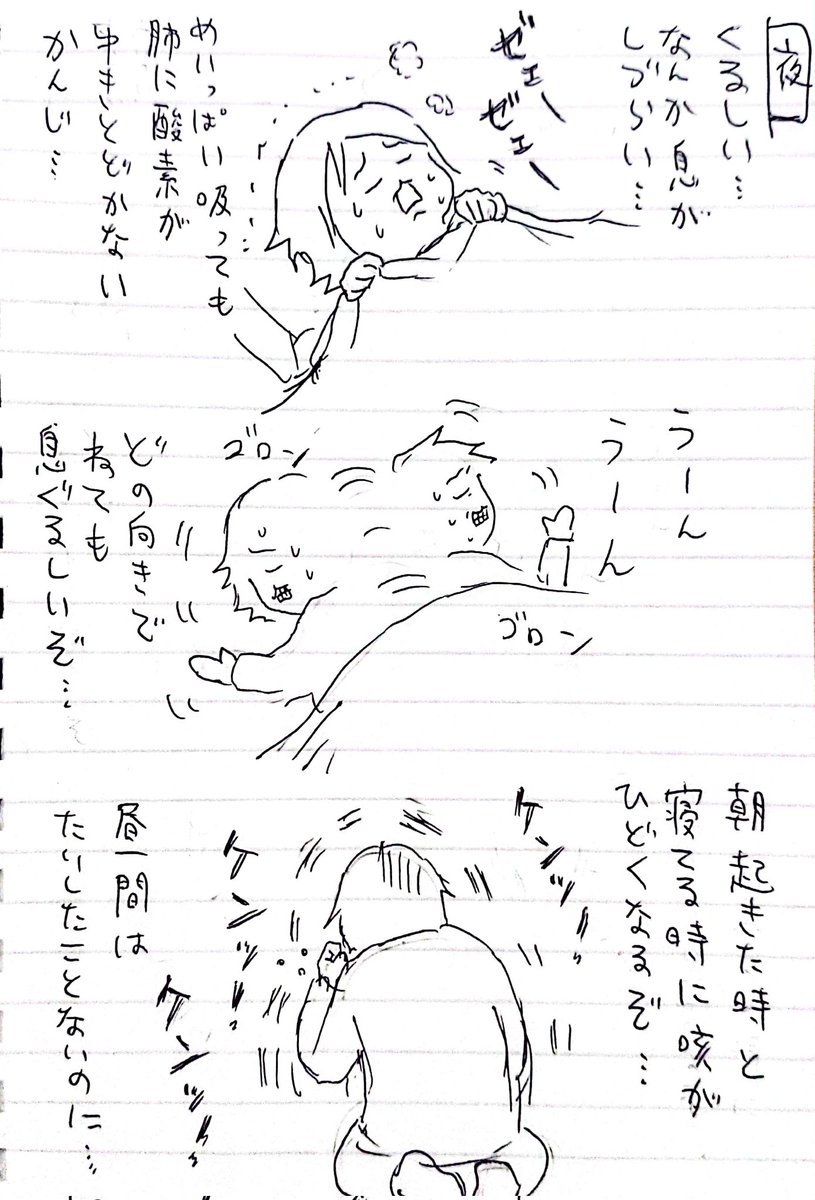 夜
くるしい…
なんか息が
しづらい…
ゼェー
ゼェー
めいっぱい吸っても
肺に酸素が
ゆきとどかない
かんじ…
うーん
うーん
ゴローン
ゴローン
どの向きで
ねても
息ぐるしいぞ…
朝起きた時と
寝てる時に咳が
ひどくなるぞ…
ケンッ
ケンッ
ケンッ
昼間は
たいしたことないのに…